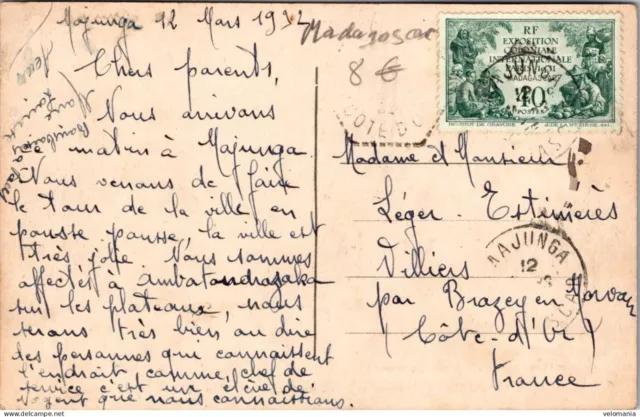 Majunga 12 Mars 1932
Chers parents,
Nous arrivons
matin à Majunga
Nous venons de faire
le tour de la ville en
pousse pousse, la ville est
très jolie Nous sommes
affectés à ambatondrazaka
sur les plateaux, nous
serons très bien au dire
des personnes que connaissent
l'endroit comme chef de
service c'est un élève de
Nogent que nous connaissions.
Madagascar
8 €
RF
EXPOSITION
COLONIALE
INTERNATIONALE
PARIS 1931
MADAGASCAR
40c
POSTES
Madame et Monsieur
Léger - Estimères
Villiers
par Brazey en Morvan
(Côte-d'Or)
France
MAJUNGA
12
velomania